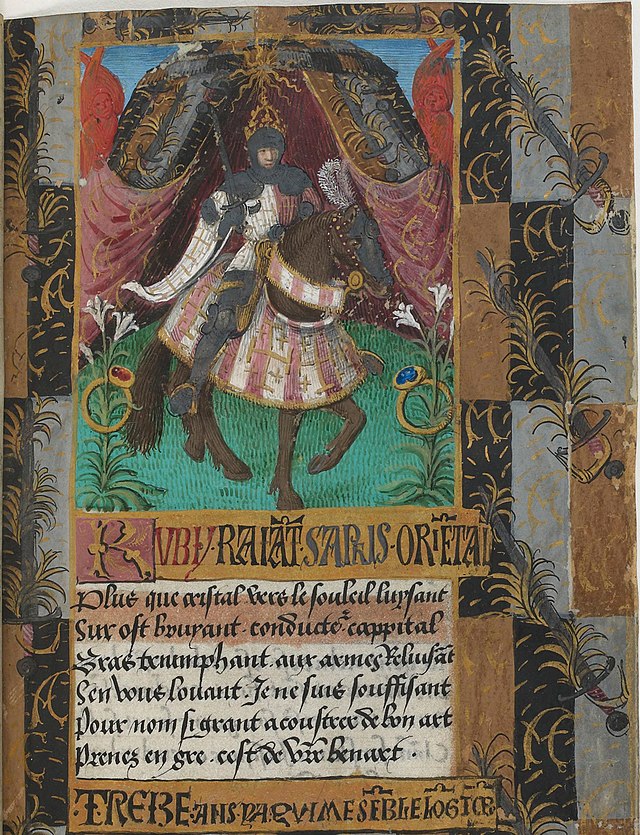 RUBY · RAIĀT · SAPHIS · ORIĒTAL
Plus que cristal vers le souleil luysant
Sur ost bruyant · conducteᵣ cappital
Bras triumphant aux armes Reluisāt
Sen vous louant · Je ne suis souffisant
Pour nom si grant acoustrer de bon art
Prenez en gre · cest de vr̃e benart ·
· TREBE · ANS